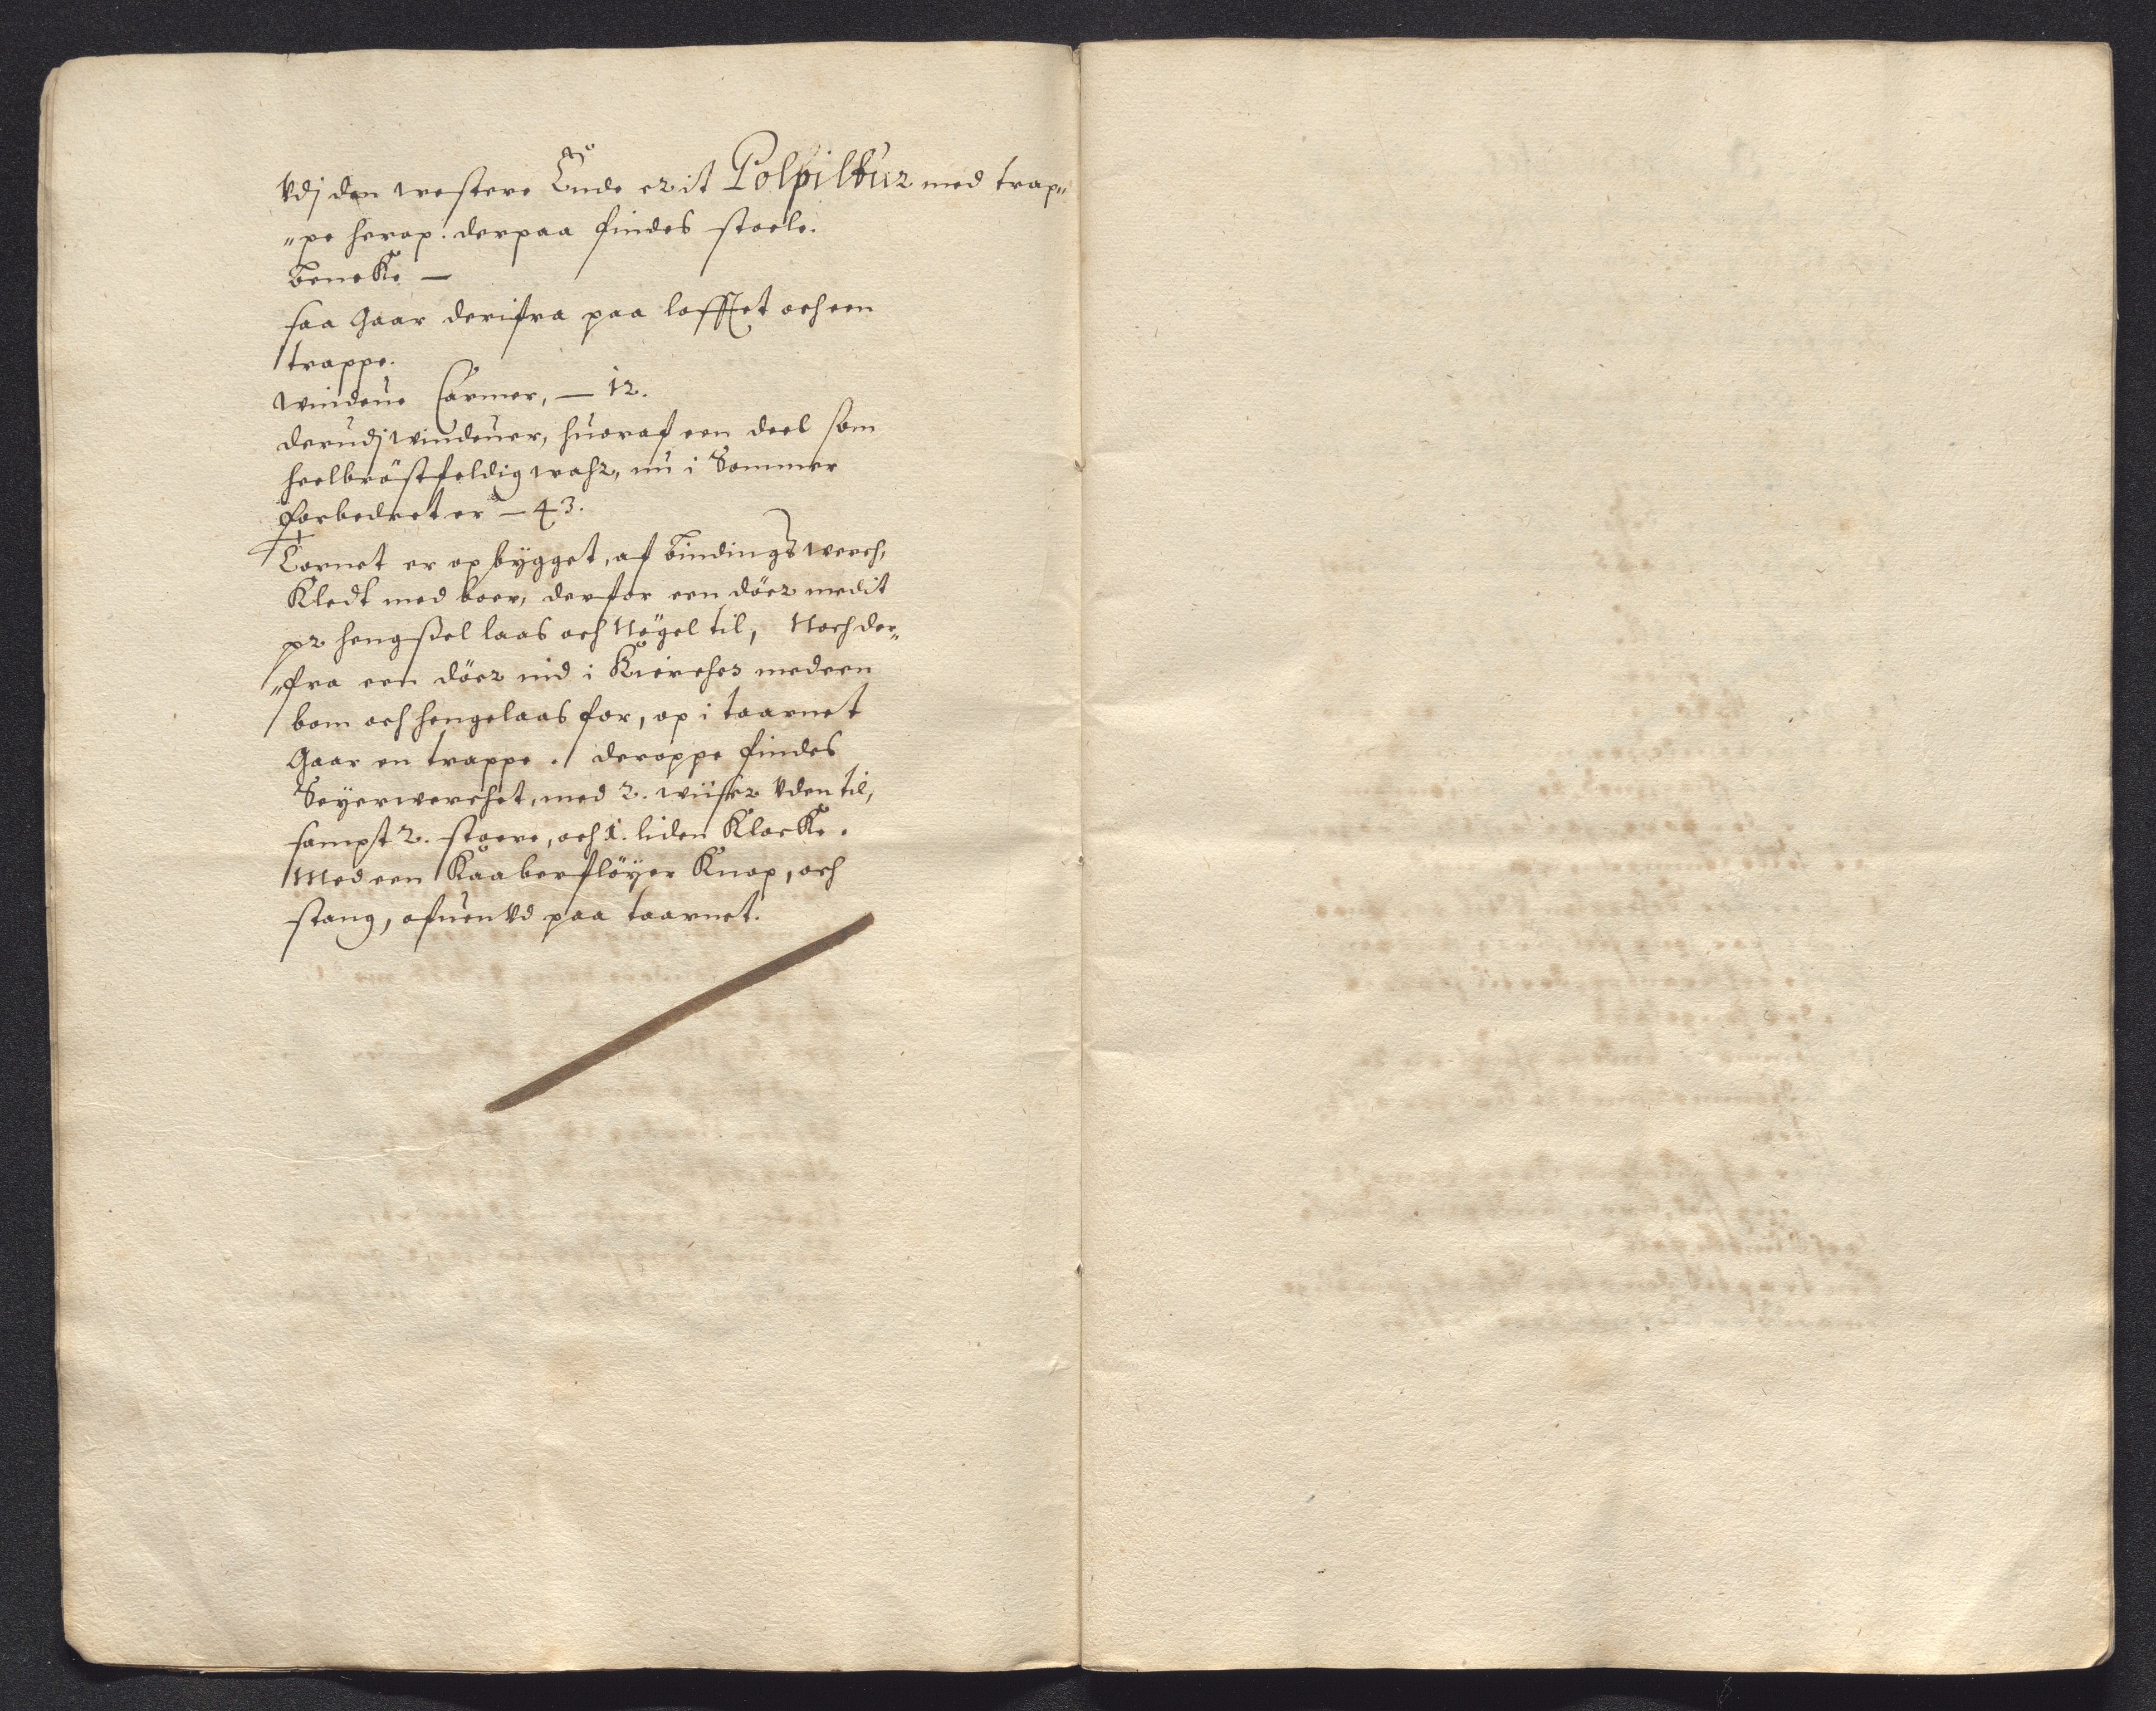 Udj den westere Ende er it Polpilttur med trap„
„pe herop. derpaa findes stoele.
Bencke —
saa Gaar derifra paa lofftet och een
trappe.
Windeue Carmer, — 12.
derudj windeuer, huoraf een deel som
heelbröstfeldig wahr, nu i Sommer
forbedret er — 43.
Tornet er opbÿgget, af Bindingswerch,
Kledt med boer, derfor een döer med it
pr hengssel laas och Nögel til, Noch der„
„fra een döer nid i Kierchen med een
bom och hengelaas for, op i taarnet
Gaar en trappe. deroppe findes
Seÿerwerchet, med 2. wiiser Uden til,
sampt 2. stoere, och 1. liden Klocke.
Med een Kaaberflöÿer Knap, och
stang, ofuen Ud paa taarnet.